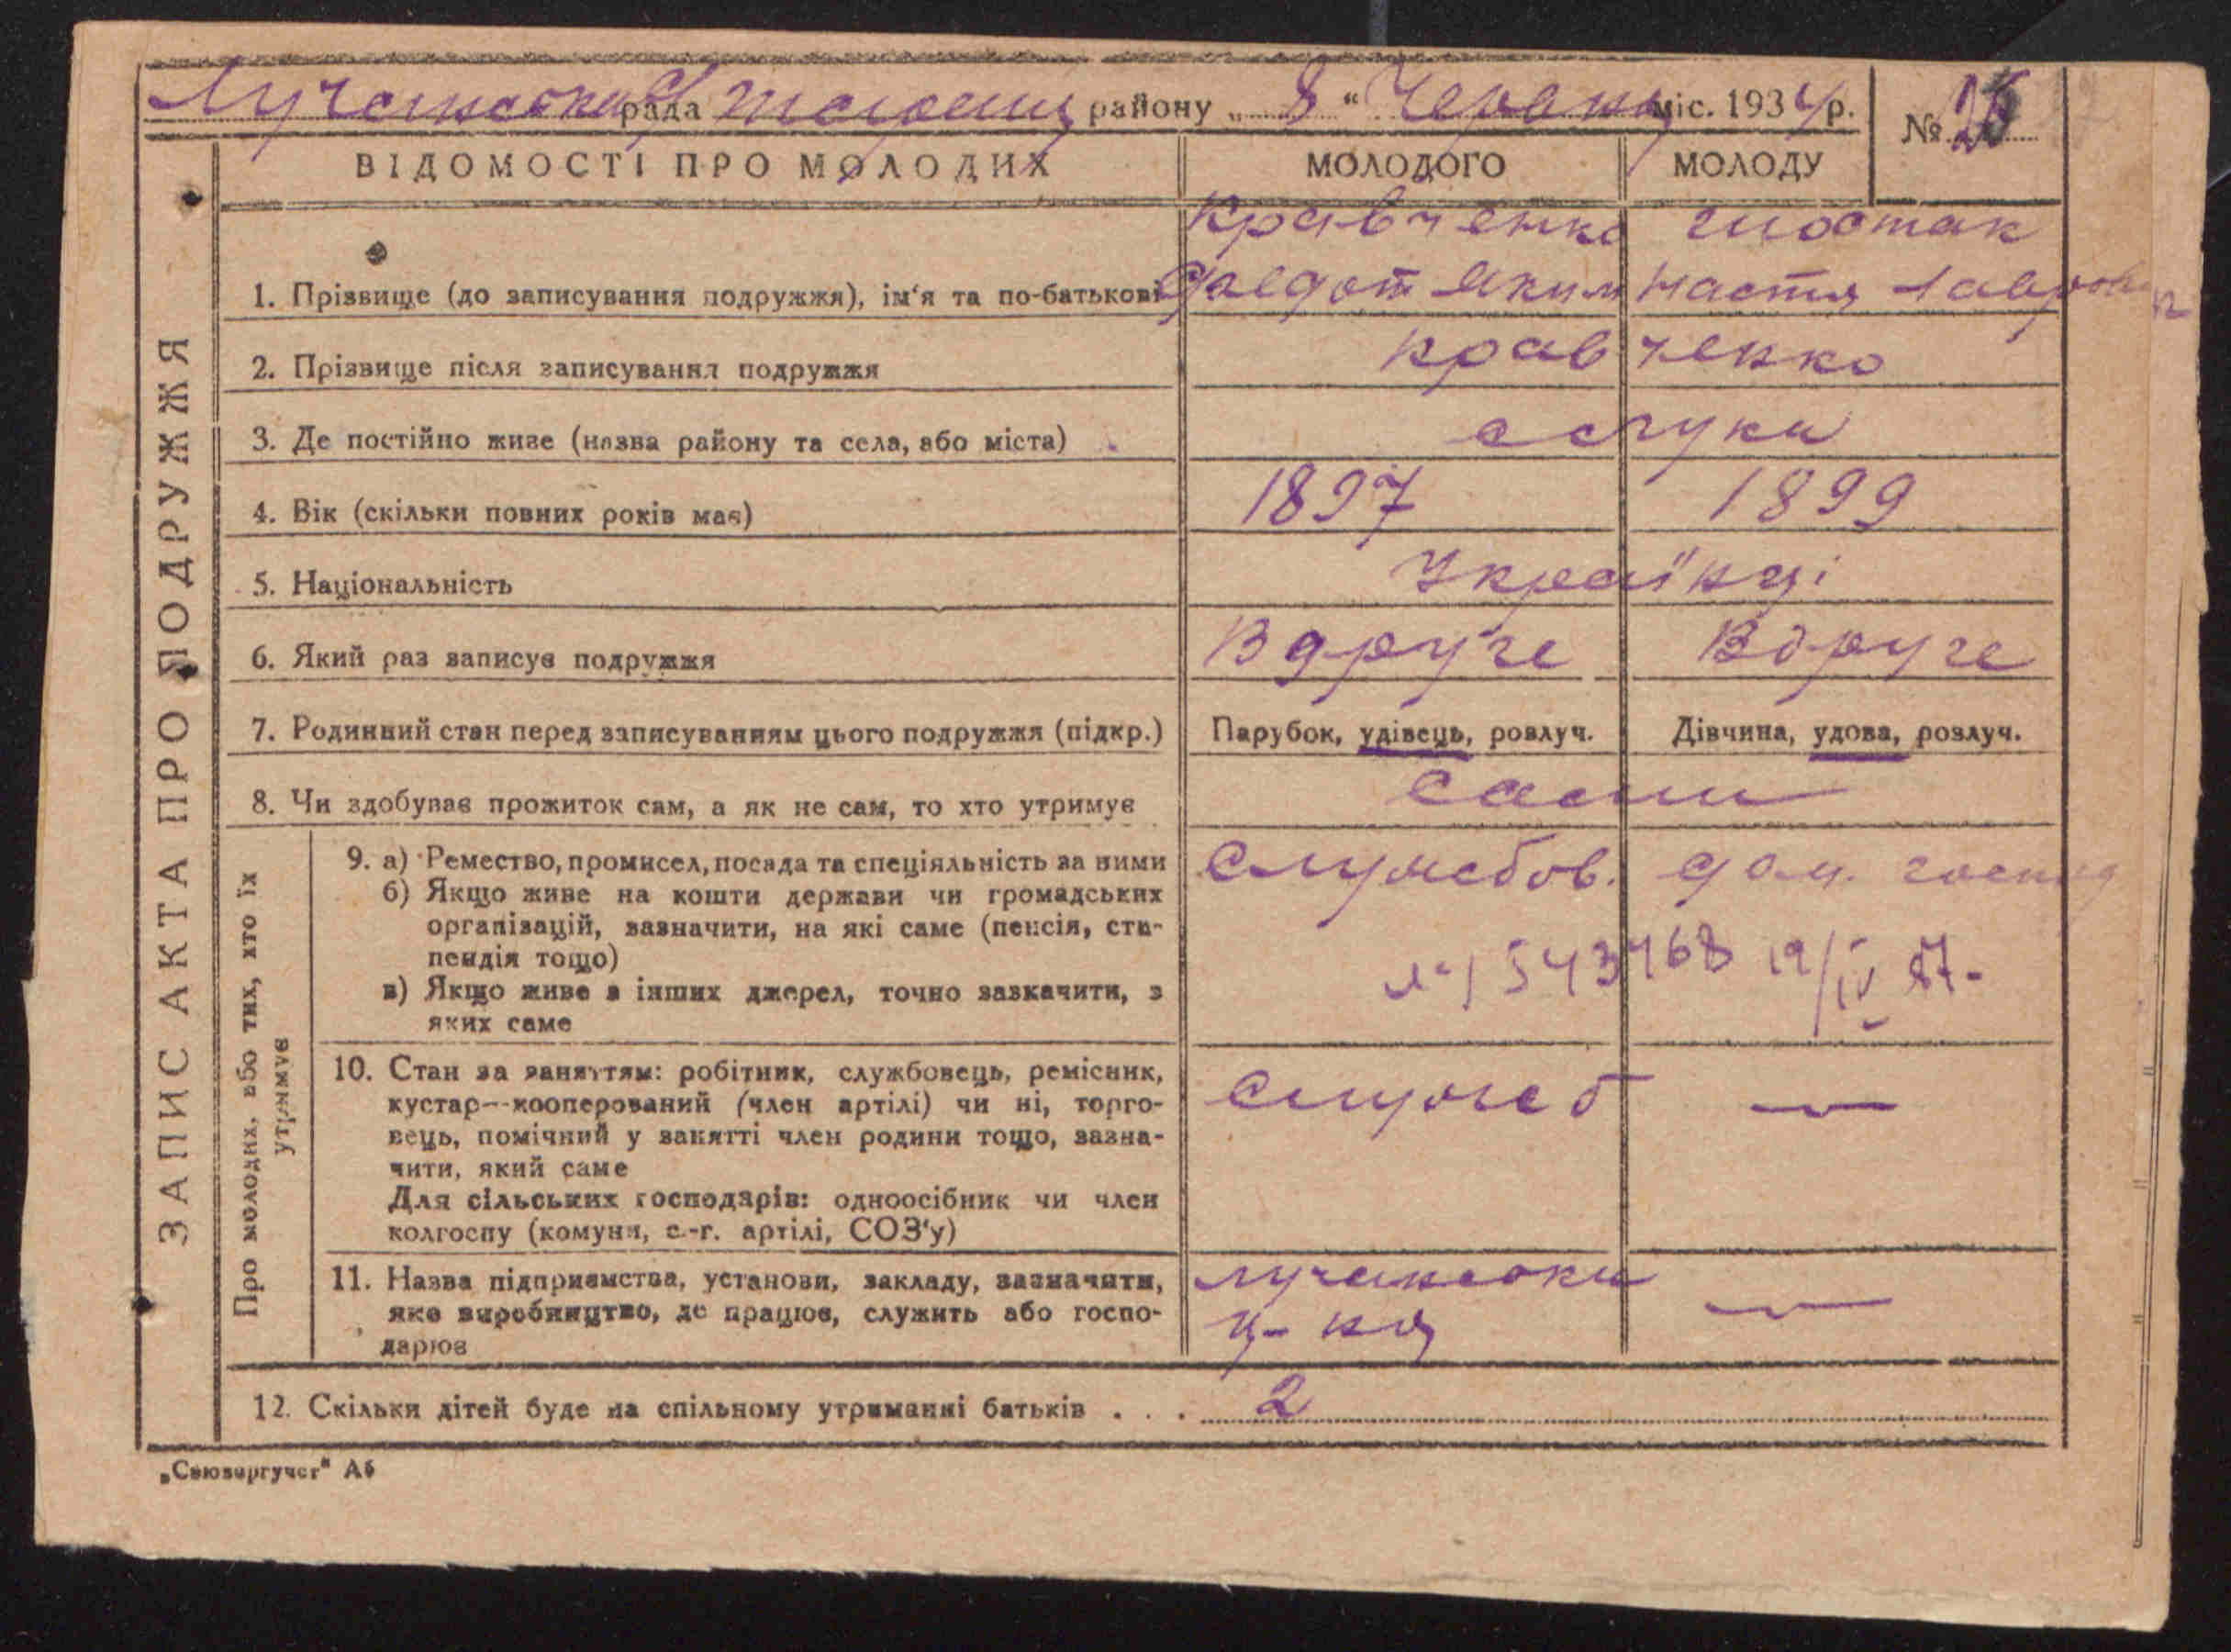 Лучанська рада району „ 8 “ Червня міс. 1934 р. №
ВІДОМОСТІ ПРО МОЛОДИХ МОЛОДОГО МОЛОДУ
Кравченко Шостак
1. Прізвище (до записування подружжя), ім‘я та по-батькові Федот Яким Настя Лавров
2. Прізвище після записування подружжя Кравченко
3. Де постійно живе (назва району та села, або міста)
4. Вік (скільки повних років має) 1897 1899
5. Національність Українці
6. Який раз записує подружжя Вдруге Вдруге
7. Родинний стан перед записуванням цього подружжя (підкр.) Парубок, удівець, розлуч. Дівчина, удова, розлуч.
8. Чи здобуває прожиток сам, а як не сам, то хто утримує Сами
9. а) Ремество, промисел, посада та спеціяльність за ними Службов. дом. госпо
б) Якщо живе на кошти держави чи громадських
організацій, зазначити, на які саме (пенсія, сти-
пендія тощо)
в) Якщо живе з інших джерел, точно зазначити, з
яких саме
10. Стан за заняттям: робітник, службовець, ремісник, Служб —
кустар—кооперований (член артілі) чи ні, торго-
вець, помічний у занятті член родини тощо, зазна-
чити, який саме
Для сільських господарів: одноосібник чи член
колгоспу (комуни, с.-г. артілі, СОЗ‘у)
11. Назва підприємства, установи, закладу, зазначити, Лучанська —
яке виробництво, де працює, служить або госпо-
дарює
12. Скільки дітей буде на спільному утриманні батьків . . . 2
ЗАПИС АКТА ПРО ПОДРУЖЖЯ
Про молодих, або тих, хто їх
утримує